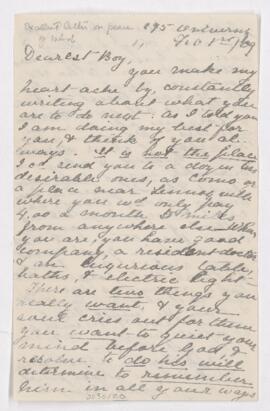 Excellent letter on peace
of mind
195 University
Feb 1st/99
Dearest Boy,
you make my
heart ache by constantly
writing about what you
are to do next. as I told you
I am doing my best for
you, & think of you al-
ways. It is not the place
I cd send you to a dozen
desirable ones, as Como or
a place near
where you wd only pay
4.00 a month 5 miles
from anywhere else. When
you are, you have good
company, a resident doctor
& a luxurious table,
baths, & electric light
There are two things you
really want, & your
soul cries out for them
you want to quiet your
mind before God, &
resolve to do his will
determine to remember
him in all your ways